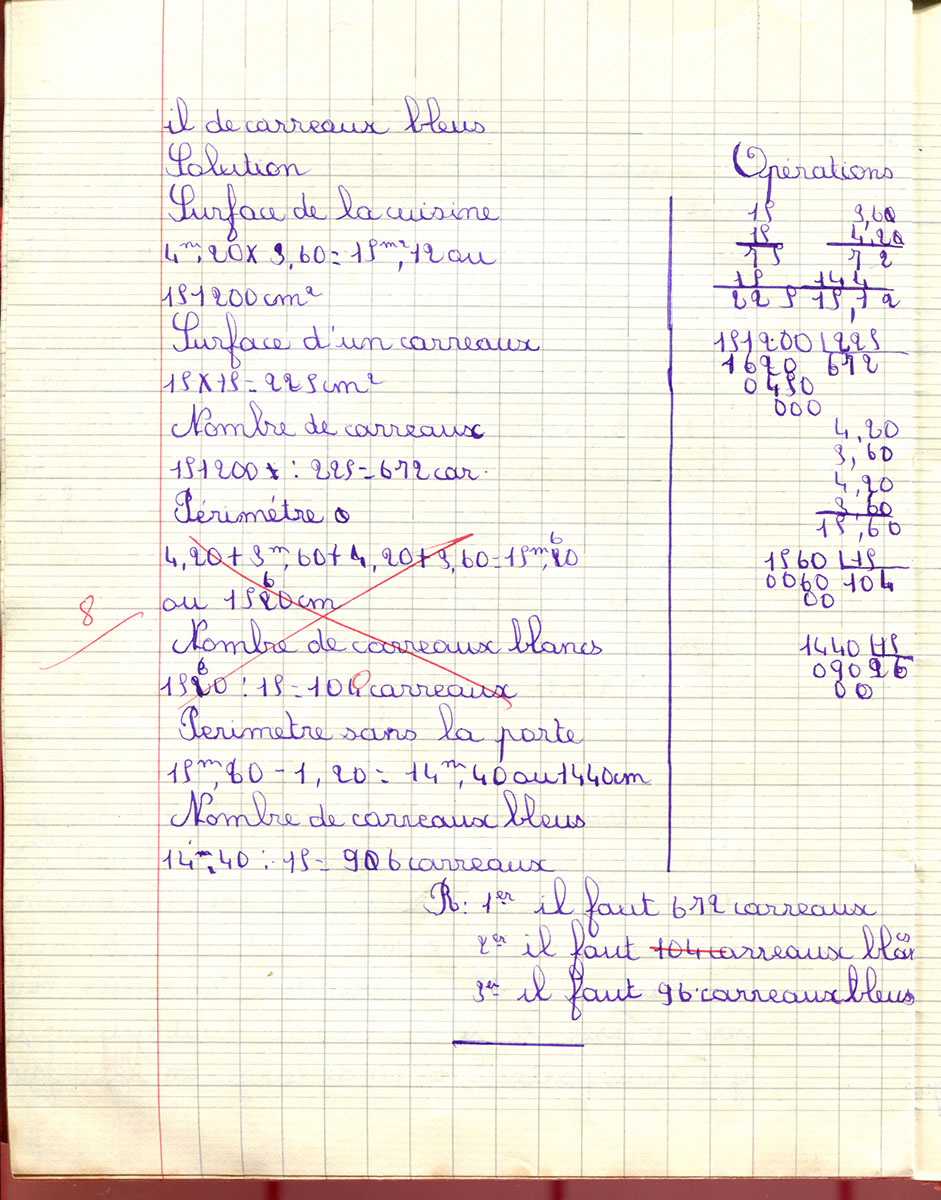 il de carreaux bleus
Solution
Surface de la cuisine
4m,20 x 3,60 = 15m²,12 ou
151200 cm²
Surface d'un carreaux
15 x 15 = 225 cm²
Nombre de carreaux
151200 : 225 = 672 car.
Périmétre
4,20 + 3m,60 + 4,20 + 3,60 = 15m,60
ou 1560 cm
8
Nombre de carreaux blancs
1560 : 15 = 104 carreaux
Perimetre sans la porte
15m,60 - 1,20 = 14m,40 ou 1440cm
Nombre de carreaux bleus
14m,40 : 15 = 96 carreaux
R: 1er il faut 672 carreaux
2er il faut 104 carreaux blancs
3er il faut 96 carreaux bleus
Opérations
15 3,60
15 4,20
75 72
15 144
225 15,12
151200 225
1620 672
0450
000
4,20
3,60
4,20
3,60
15,60
1560 15
0060 104
00
1440 15
090 96
00